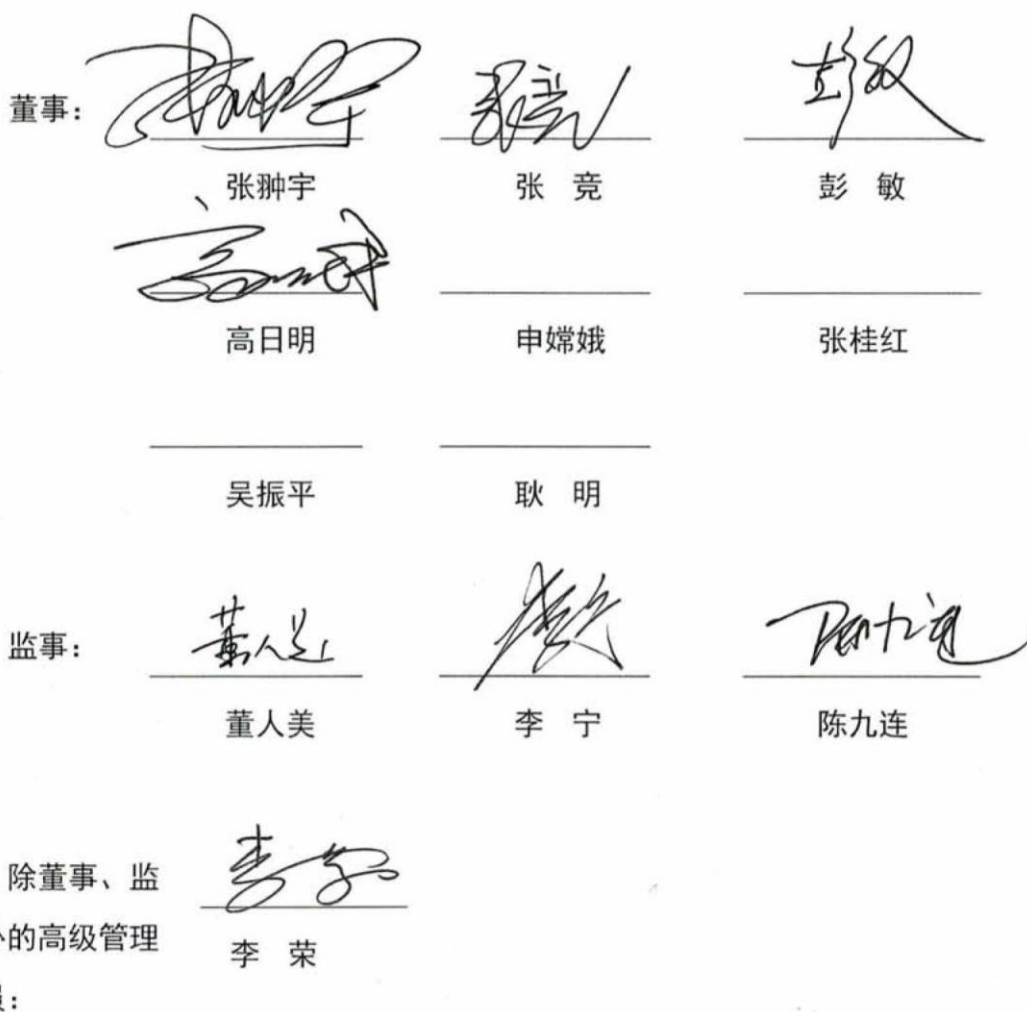 董事：
张翀宇 张 竞 彭 敏
高日明 申嫦娥 张桂红
吴振平 耿 明
监事：
董人美 李 宁 陈九连
除董事、监
的高级管理
李 荣
：